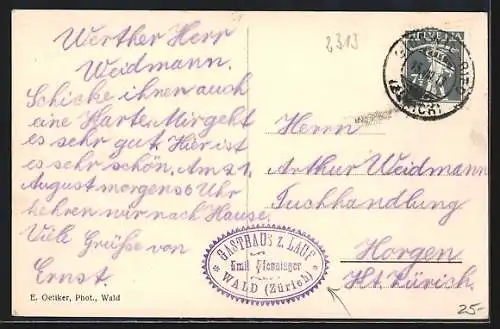 Werther Herr
Weidmann.
Schicke ihnen auch
eine Karte. Mir geht
es sehr gut. Hier ist
es sehr schön. Am 21.
August morgens 6 Uhr
kehren wir nach Hause.
Viele Grüße von
Ernst.
E. Oetiker, Phot., Wald
2313
HELVETIA
7½
(ZÜRICH)
Herrn
Arthur Weidmann
Tuchhandlung
Horgen
Kt. Zürich.
GASTHAUS z. LAUF
Emil
WALD (Zürich)
25-